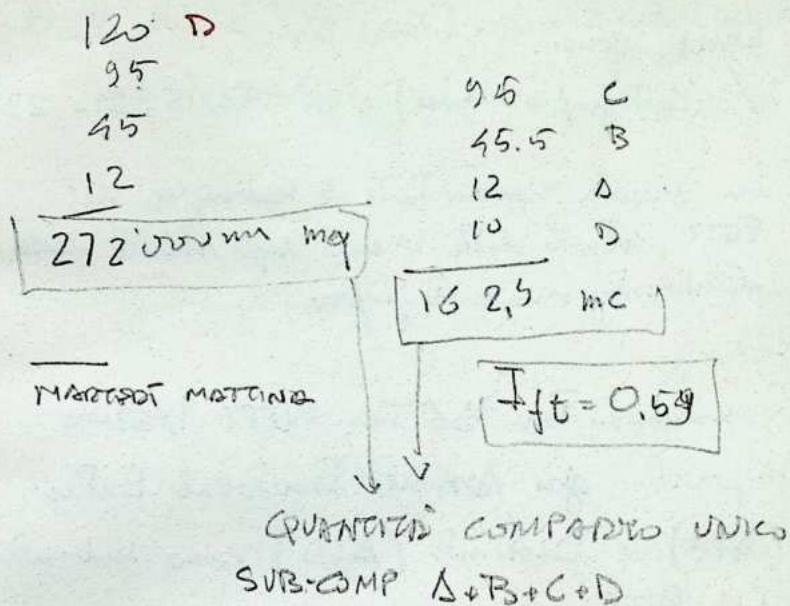 120 D
95
45
12
272'000 mq
95 C
45.5 B
12 A
10 D
162,5 mc
MARTEDÌ MATTINA
Ift = 0.59
QUANTITÀ COMPARTO UNICO
SUB-COMP A+B+C+D